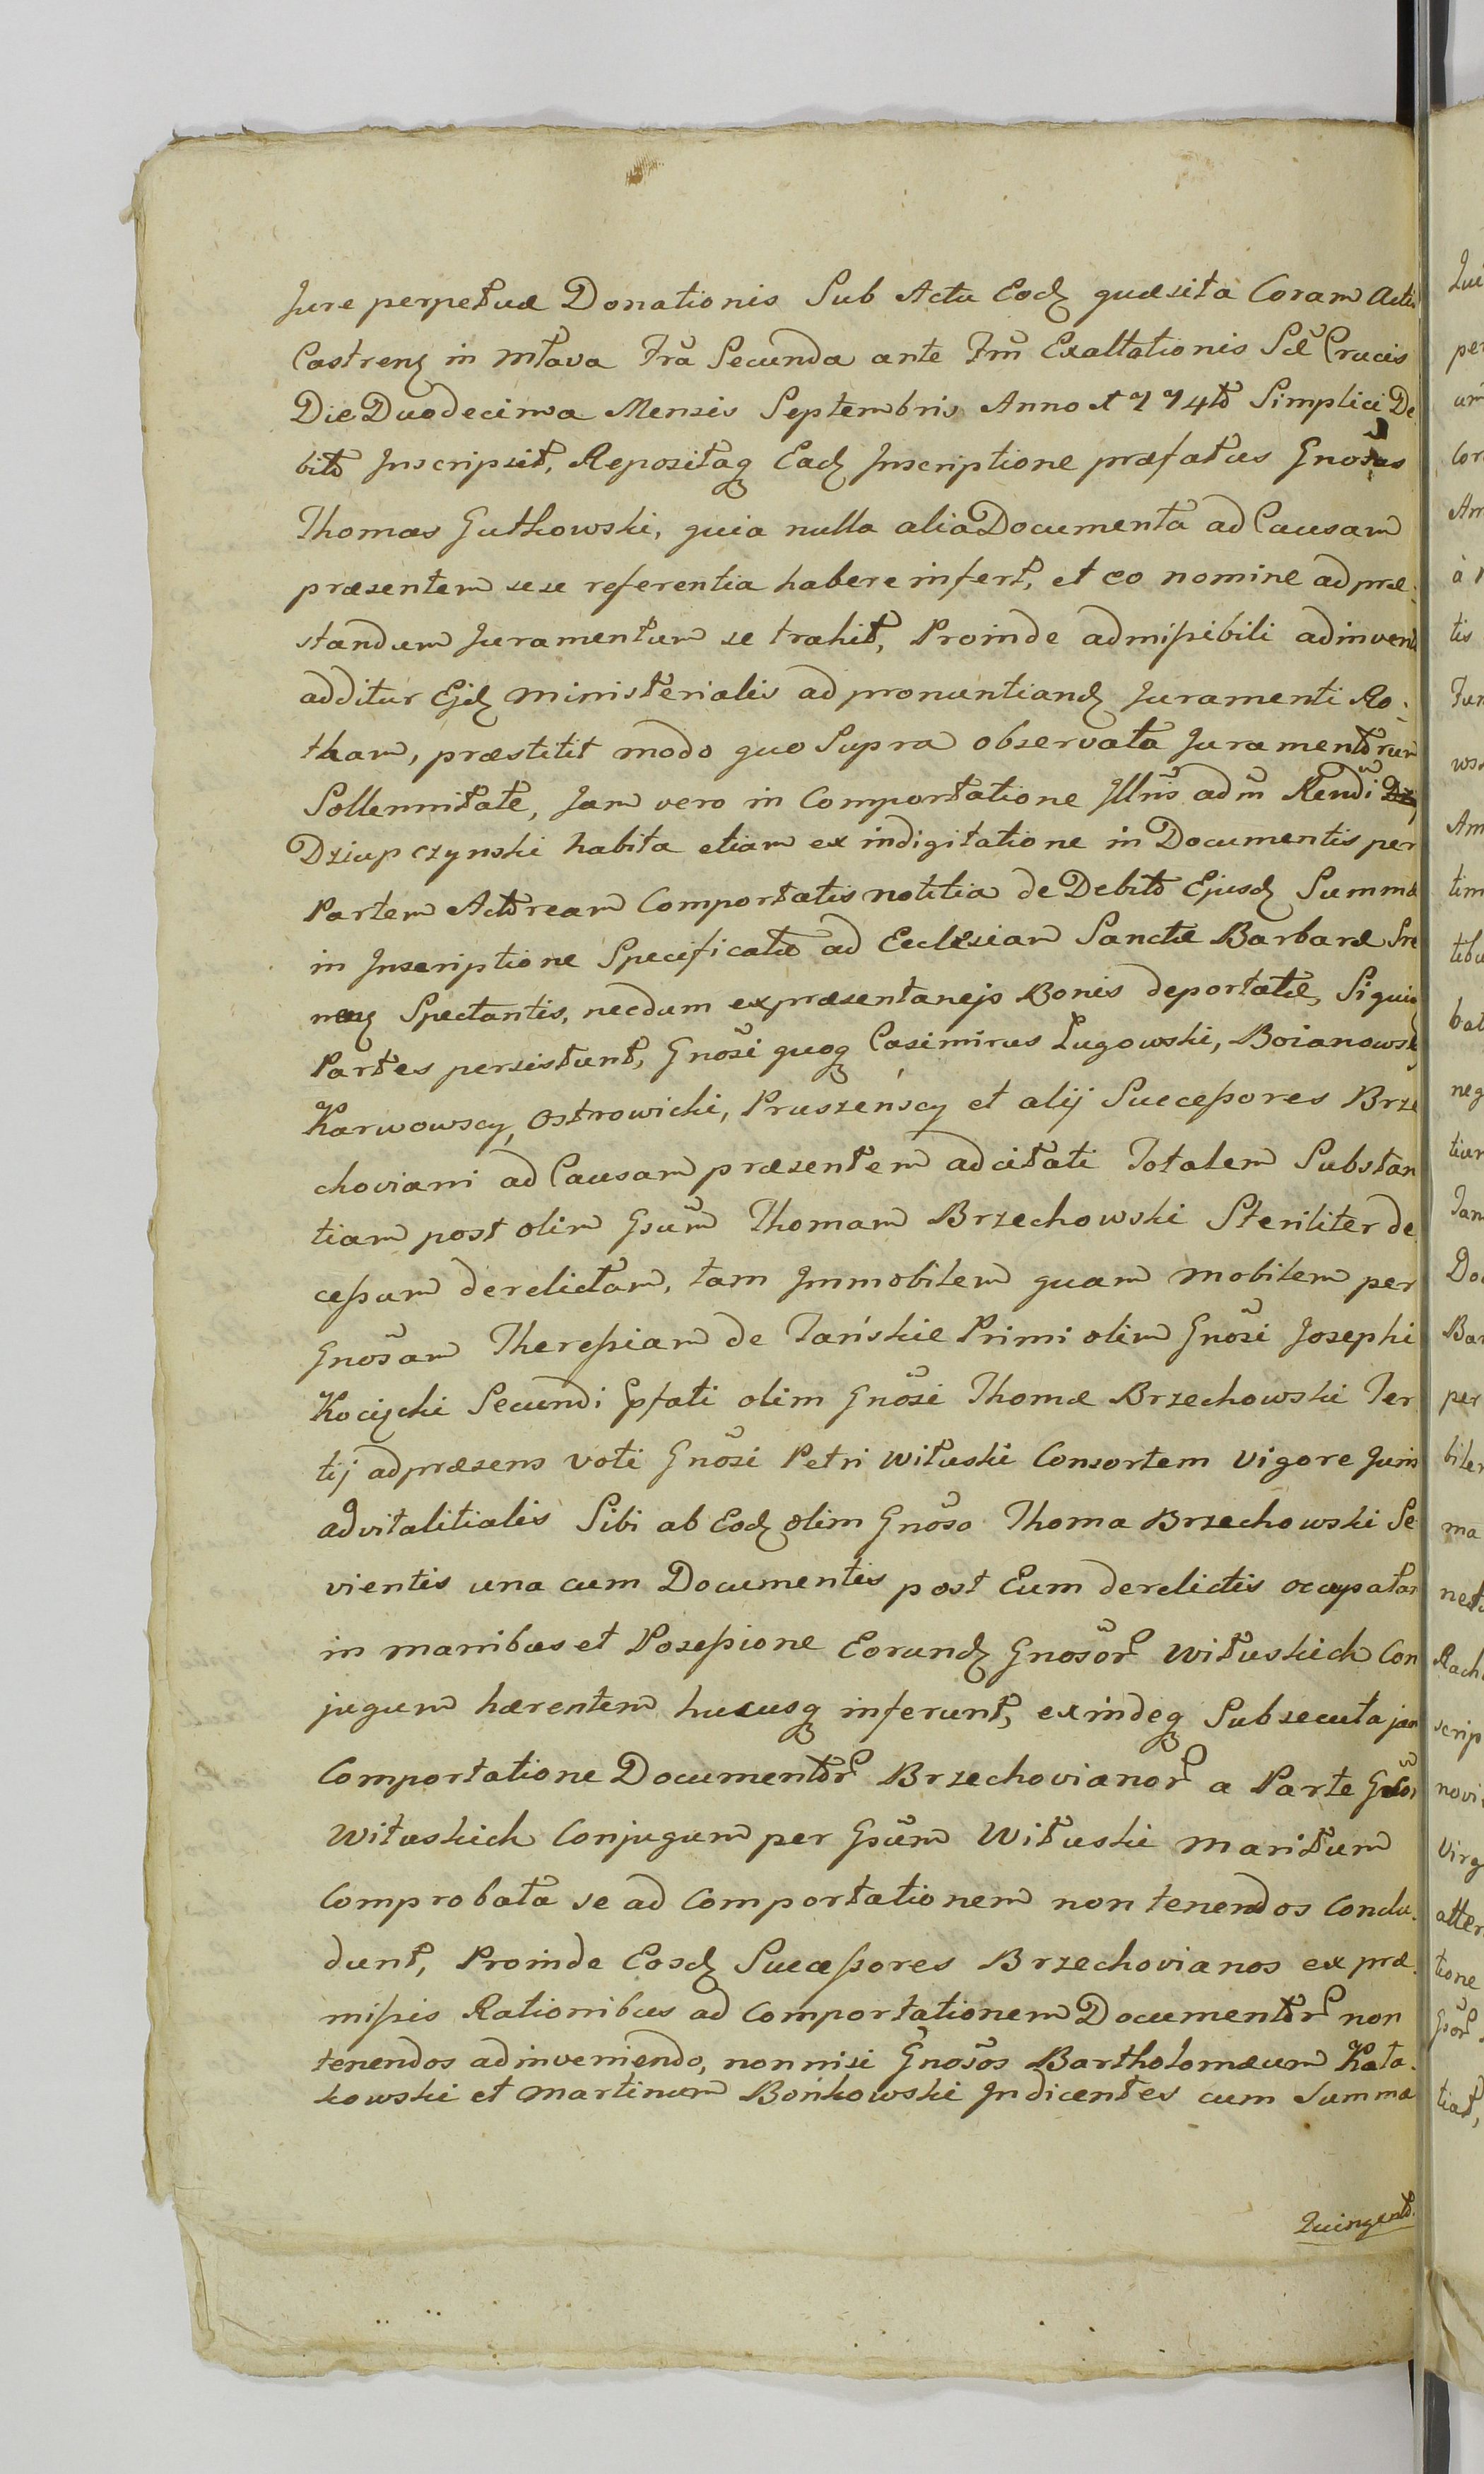 Jure perpetuæ Donationis Sub Actu Eodꝫ quæsita Coram Actis
Castrenꝫ in Mława Fra Secunda ante Fm̃ Exaltationis Sæ̃ Crucis
Die Duodecima Mensis Septembris Anno 1774to Simplici De
bito Inscripsit, Repositaqꝫ Eadꝫ Inscriptione præfatus Gnosus
Thomas Gutkowski, quia nulla alia Documenta ad Causam
præsentem sese referentia habere infert, et eo nomine ad præ:
standum Juramentum se trahit, Proinde admißibili adinvento
additur Ejdꝫ Ministerialis ad pronuntiandꝫ Juramenti Ro:
tham, præstitit modo quo Supra observata Juramentorum
Sollennitate, Jam vero in Comportatione Illũs adm̃ Rendĩ
Dziupczynski habita etiam ex indigitatione in Documentis per
Partem Actoream Comportatis notitia de Debito Ejusdꝫ Summæ
in Inscriptione Specificatæ ad Ecclesiam Sanctæ Barbaræ Sre
nenꝫ Spectantis, necdum ex præsentanejs Bonis deportatæ, Siquidꝫ
Partes persistunt, Gnosĩ quoqꝫ Casimirus Ługowski, Boianowski
Karwowscy, Ostrowicki, Pruszeńscy et alij Succeßores Brze
choviani ad Causam præsentem adcitati Totalem Substan
tiam post olim Gsũm Thomam Brzechowski Steriliter de
ceßum derelictam, tam Immobilem quam Mobilem per
Gnosam Thereßiam de Tańskie Primi olim Gnosi Josephi
Kocięcki Secundi Pfati olim Gnosi Thomæ Brzechowski Ter
tij ad præsens voti Gnosi Petri Wituski Consortem vigore Juris
advitalitialis Sibi ab Eodꝫ olim Gnoso Thoma Brzechowski Se
vientis una cum Documentis post Eum derelictis occupatam
in manibus et Poseßione Eorundꝫ Gnosor̃ Wituskich Con
jugum hærentem hucusqꝫ inferunt, exindeqꝫ Subsecuta jam
Comportatione Documentor̃ Brzechovianor̃ a Parte Gsor̃
Wituskich Conjugum per Gsũm Wituski Maritum
Comprobata se ad Comportationem non tenendos Conclu:
dunt, Proinde Eosdꝫ Succeßores Brzechovianos ex præ:
mißis Rationibus ad Comportationem Documentor̃ non
tenendos adinveniendo, nonnisi Gnosos Bartholomæum Kata:
kowski et Martinum Bońkowski Indicentes cum Summa
Quingento: